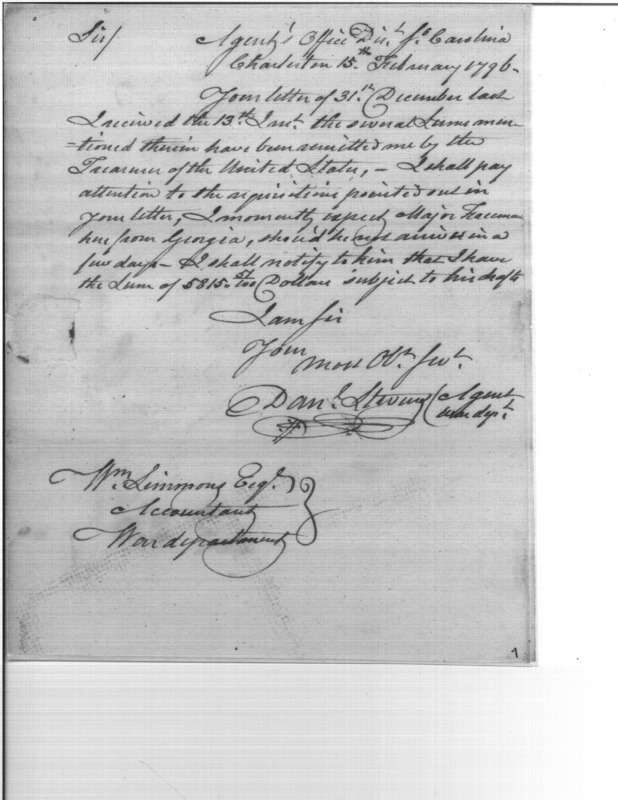 Sir/ Agent's Office Dist. So. Carolina
Charleston 15th February 1796-
Your letter of 31st December last
I received the 13th Inst. the several Sums men-
=tioned therein have been remitted me by the
Treasurer of the United States, - I shall pay
attention to the requisitions pointed out in
your letter, I momently expect Major Freeman
here from Georgia, shou'd he not arrive in a
few days - I shall notify to him that I have
the Sum of 5815. Dollars subject to his drafts
I am Sir
Your
most Obt. Svt.
Danl. Stevens Agent
war dept.
Wm. Simmons Esqr.
Accountant
War department
7